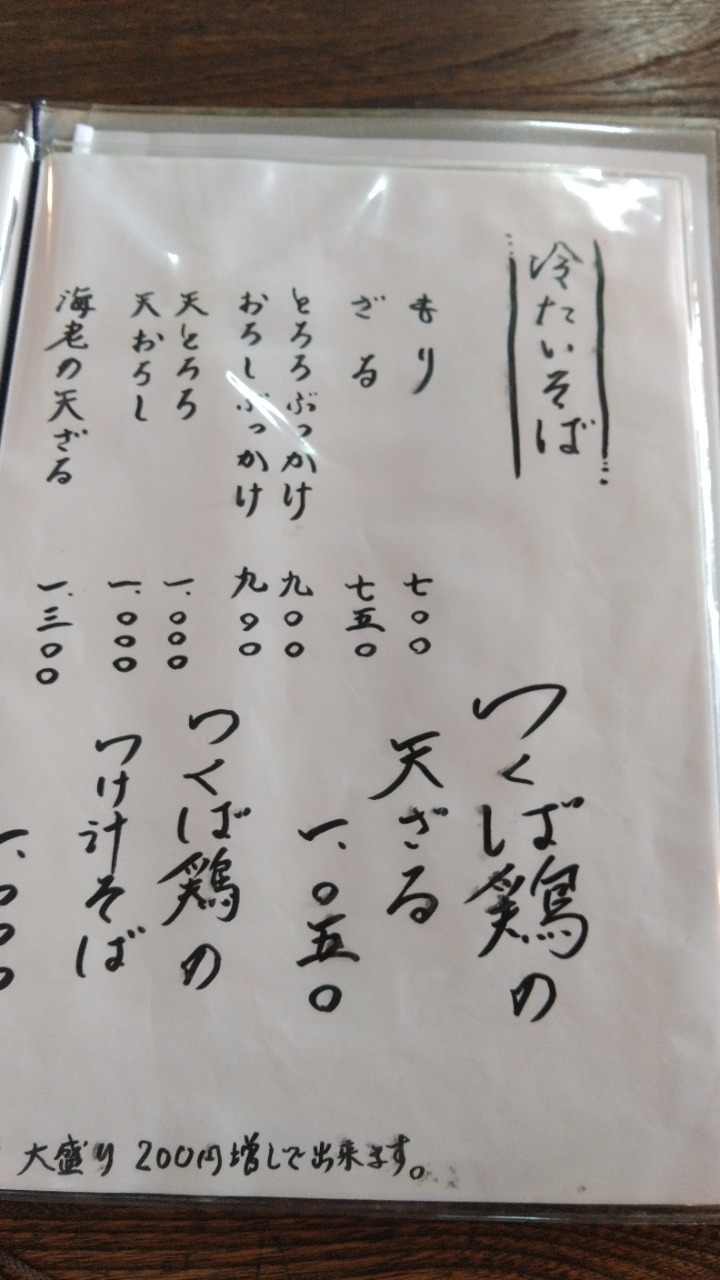 冷たいそば
もり 七〇〇
ざる 七五〇
とろろぶっかけ 九〇〇
おろしぶっかけ 九〇〇
天とろろ 一、〇〇〇
天おろし 一、〇〇〇
海老の天ざる 一、三〇〇
つくば鶏の
天ざる
一、〇五〇
つくば鶏の
つけ汁そば
一、〇〇〇
大盛り 200円増しで出来ます。